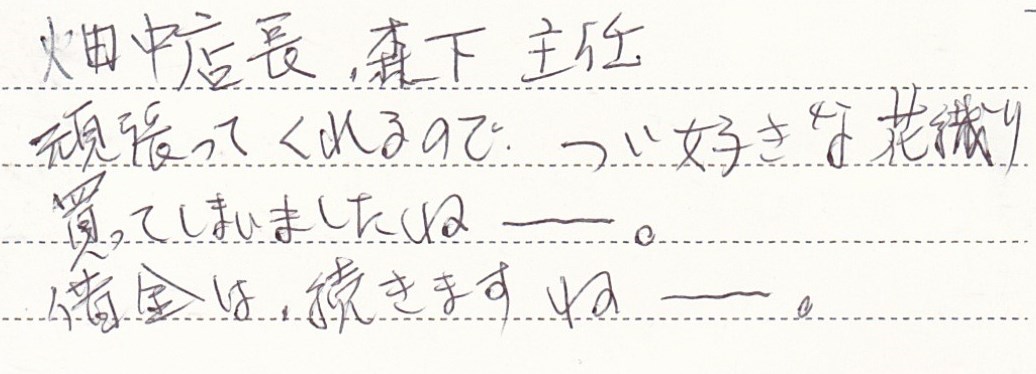 畑中店長、森下 主任
頑張ってくれるので、つい好きな花織り
買ってしまいましたねー。
借金は、続きますねー。